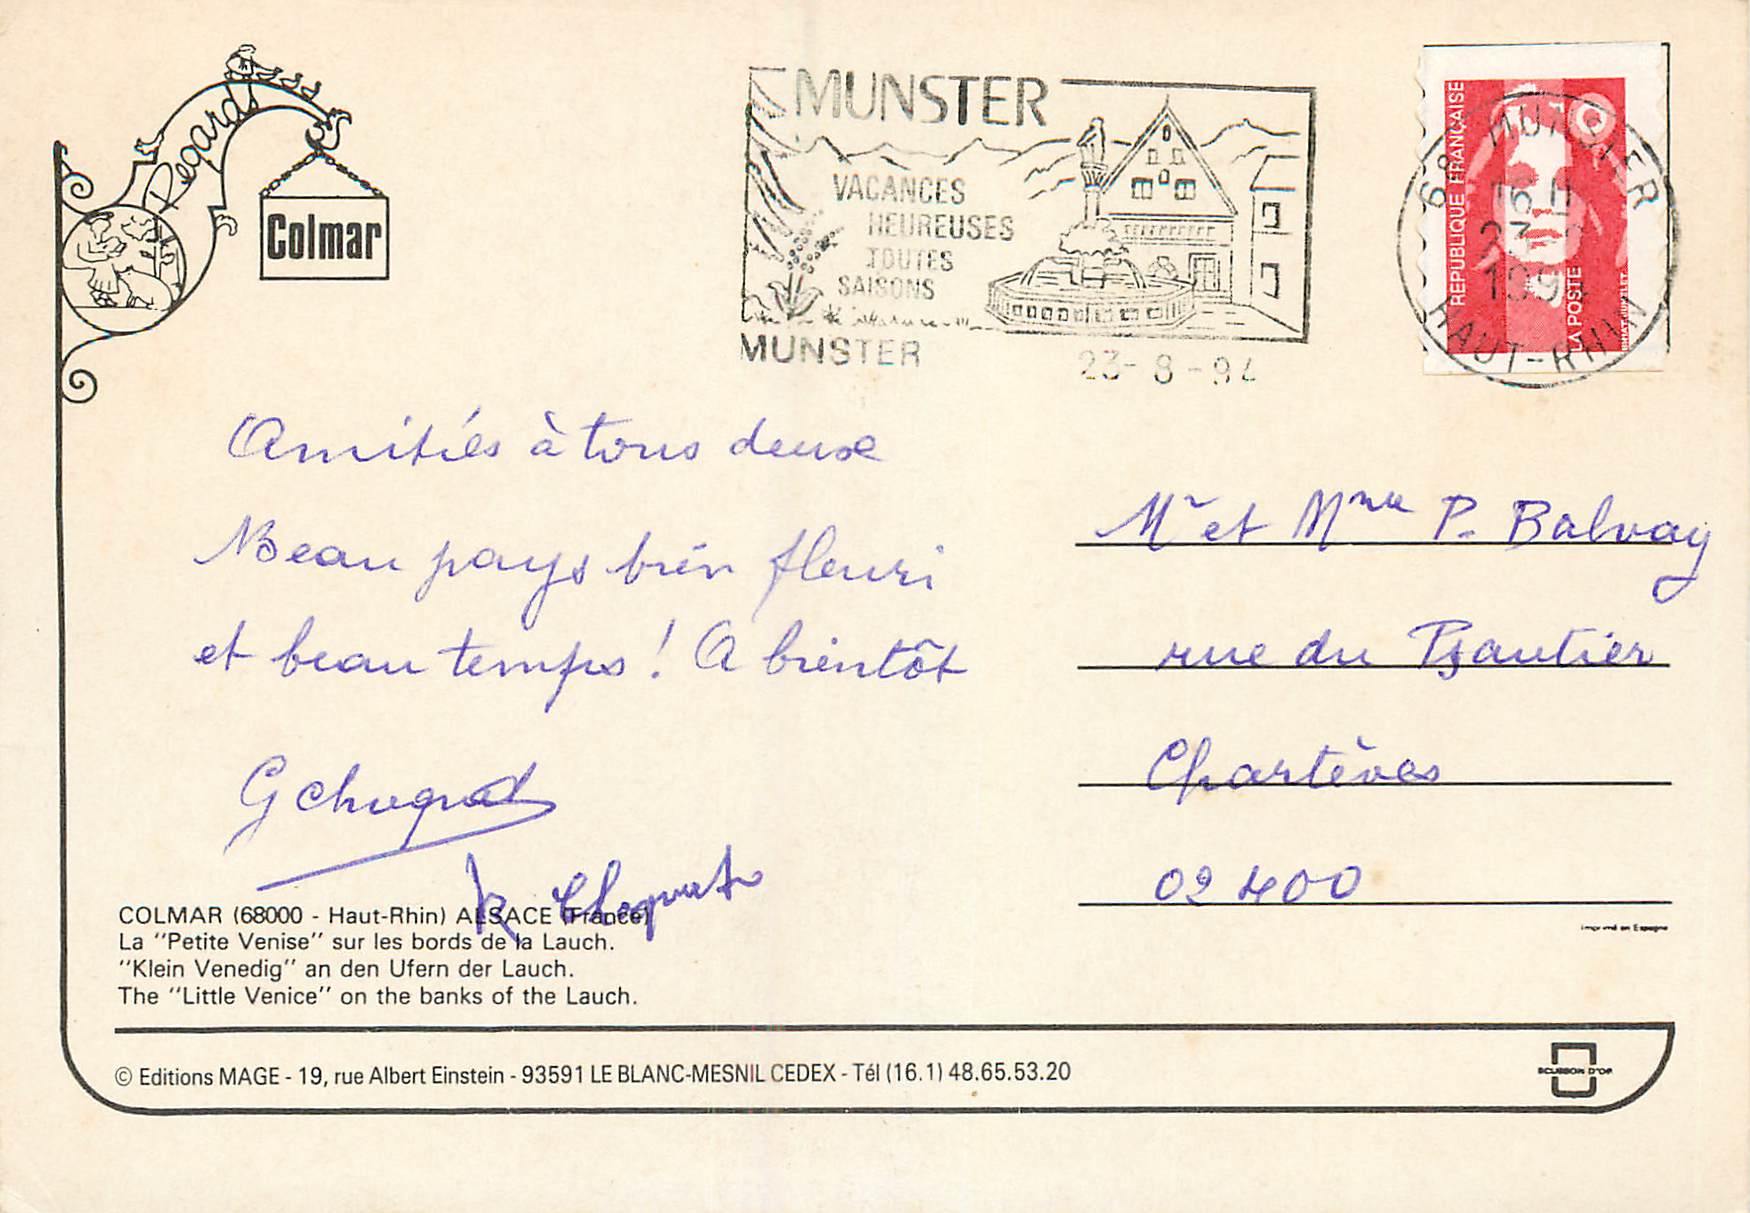 Regards
Colmar
MUNSTER
VACANCES
HEUREUSES
TOUTES
SAISONS
MUNSTER
23-8-94
REPUBLIQUE FRANÇAISE
LA POSTE
68 MUNSTER
16 H
23
1994
HAUT-RHIN
Amitiés à tous deux
Beau pays bien fleuri
et beau temps ! A bientôt
Mr et Mme P. Balvay
rue du
Chartèves
02400
COLMAR (68000 - Haut-Rhin) ALSACE (France)
La "Petite Venise" sur les bords de la Lauch.
"Klein Venedig" an den Ufern der Lauch.
The "Little Venice" on the banks of the Lauch.
Imprimé en Espagne
© Editions MAGE - 19, rue Albert Einstein - 93591 LE BLANC-MESNIL CEDEX - Tél (16.1) 48.65.53.20
ECUSSON D'OR